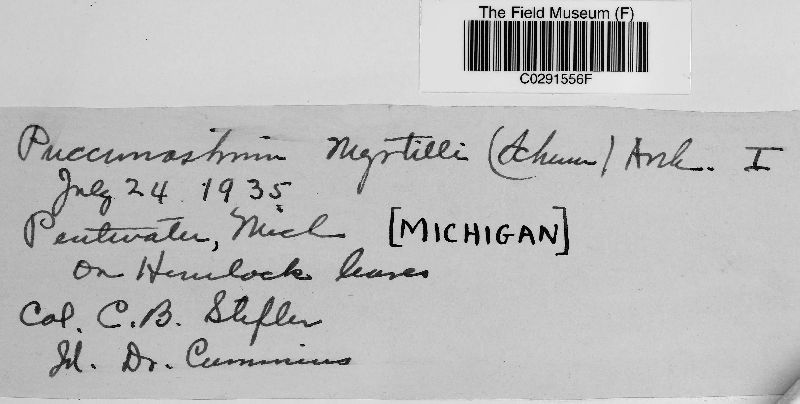 The Field Museum (F)
C0291556F
Pucciniastrum Myrtilli (Schum) Arth. I
July 24 1935
Pentwater, Mich [MICHIGAN]
on Hemlock leaves
Col. C.B. Stifler
Id. Dr. Cummins